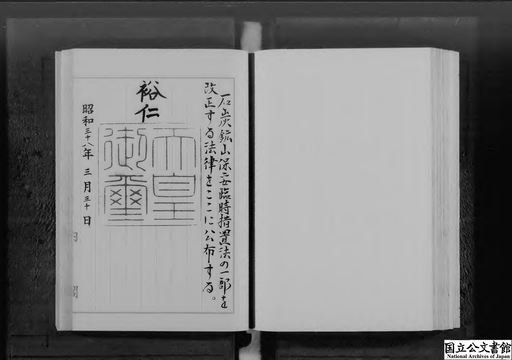 石炭鉱山保安臨時措置法の一部を
改正する法律をここに公布する。
裕仁
天皇
御璽
昭和三十八年三月三十日
国立公文書館
National Archives of Japan